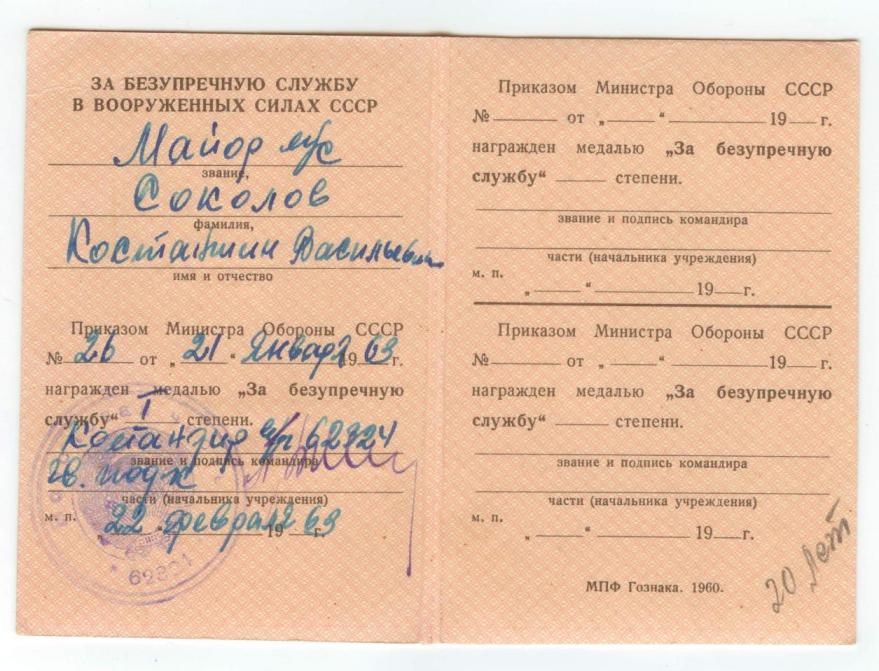 ЗА БЕЗУПРЕЧНУЮ СЛУЖБУ
В ВООРУЖЕННЫХ СИЛАХ СССР
Майор м/с
звание,
Соколов
фамилия,
Костантин Васильевич
имя и отчество
Приказом Министра Обороны СССР
№ 26 от „21“ Января 1969 г.
награжден медалью „За безупречную
службу“ I степени.
Командир в/ч 62324
звание и подпись командира
гв. подп
части (начальника учреждения)
м. п. „22“ февраля 1969 г.
Приказом Министра Обороны СССР
№ от „ “ 19 г.
награжден медалью „За безупречную
службу“ степени.
звание и подпись командира
части (начальника учреждения)
м. п.
„ “ 19 г.
Приказом Министра Обороны СССР
№ от „ “ 19 г.
награжден медалью „За безупречную
службу“ степени.
звание и подпись командира
части (начальника учреждения)
м. п.
„ “ 19 г.
МПФ Гознака. 1960.
20 лет